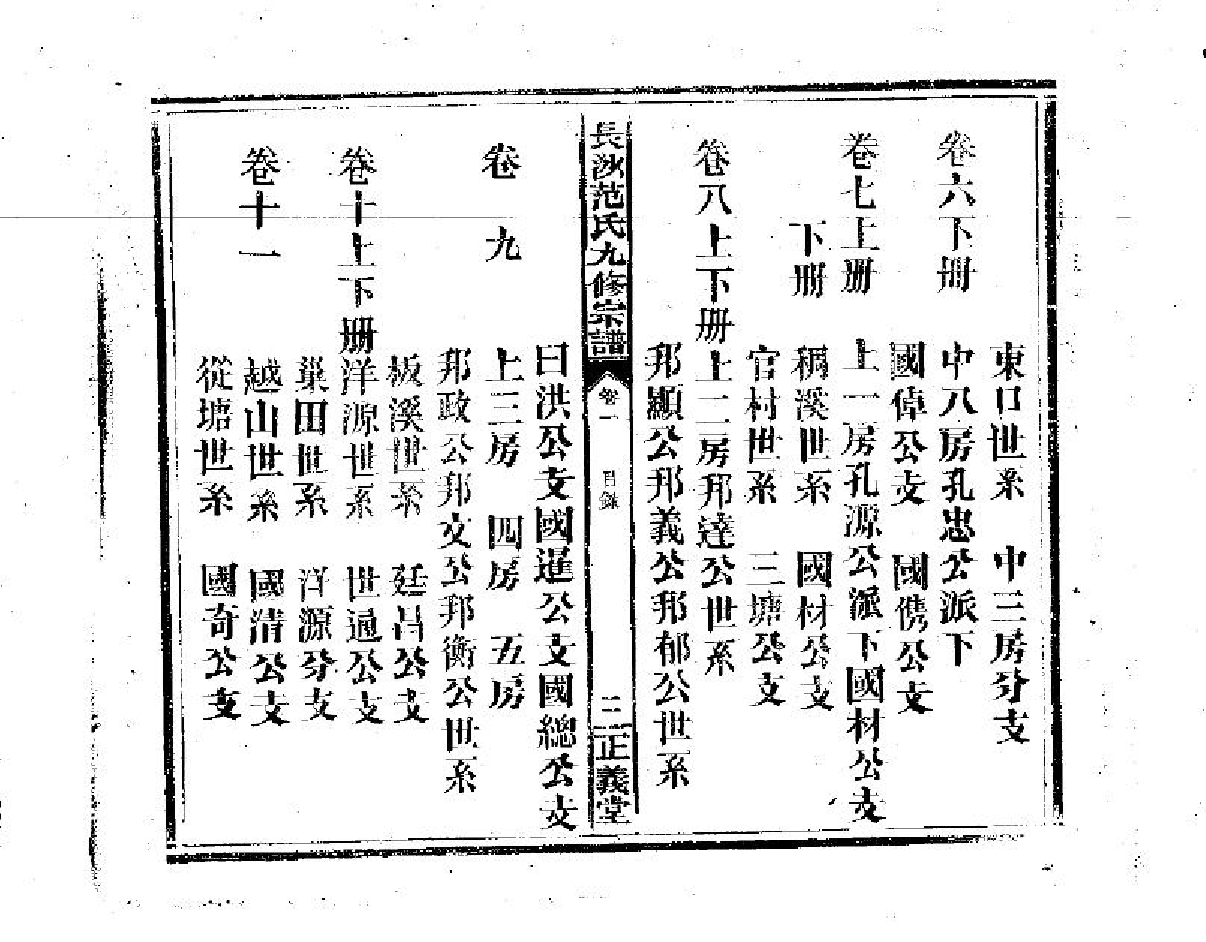 東口世系　中三房分支
卷六下册　中八房孔忠公派下
國偉公支　國儁公支
卷七上册　上一房孔源公派下國材公支
下册　稱溪世系　國材公支
官村世系　三塘公支
卷八上下册　上二房邦達公世系
邦顯公邦義公邦郁公世系
長沙范氏九修宗譜　卷一　目錄　二　正義堂
曰洪公支國暹公支國總公支
卷九　上三房　四房　五房
邦政公邦文公邦衡公世系
板溪世系　廷昌公支
卷十上下册　洋源世系　世通公支
巢田世系　洋源分支
卷十一　越山世系　國清公支
從塘世系　國奇公支